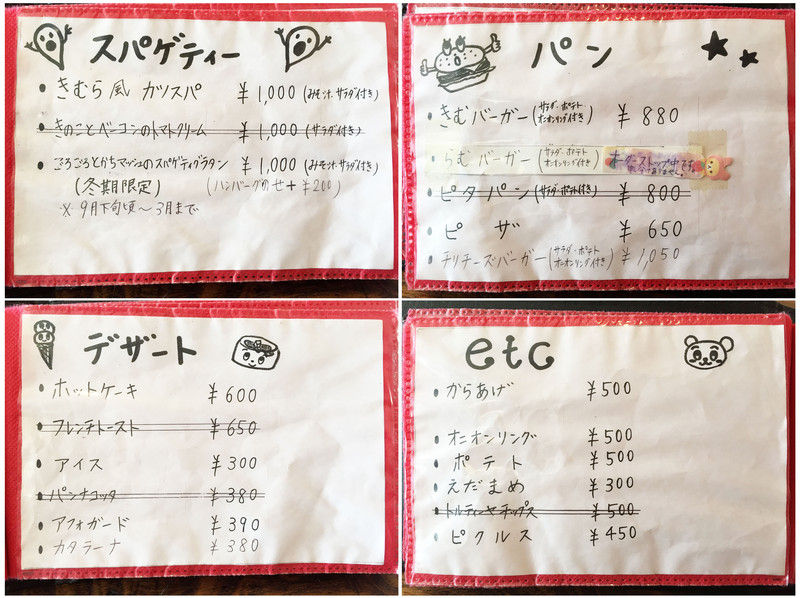 スパゲティー
きむら風 カツスパ ¥1,000 (みそ汁、サラダ付き)
きのことベーコンのトマトクリーム ¥1,000 (サラダ付き)
ごろごろとかちマッシュのスパゲティグラタン ¥1,000 (みそ汁、サラダ付き)
(冬期限定) (ハンバーグのせ+¥200)
※ 9月下旬頃～3月まで
パン
きむバーガー (サラダ・ポテト オニオンリング付き) ¥880
らむバーガー (サラダ・ポテト オニオンリング付き) オーダーストップ中です。
申し訳ありません。
ピタパン (サラダ・ポテト付き) ¥800
ピザ ¥650
チリチーズバーガー (サラダ・ポテト オニオンリング付き) ¥1,050
デザート
ホットケーキ ¥600
フレンチトースト ¥650
アイス ¥300
パンナコッタ ¥380
アフォガード ¥390
カタラーナ ¥380
etc
からあげ ¥500
オニオンリング ¥500
ポテト ¥500
えだまめ ¥300
トルティーヤチップス ¥500
ピクルス ¥450